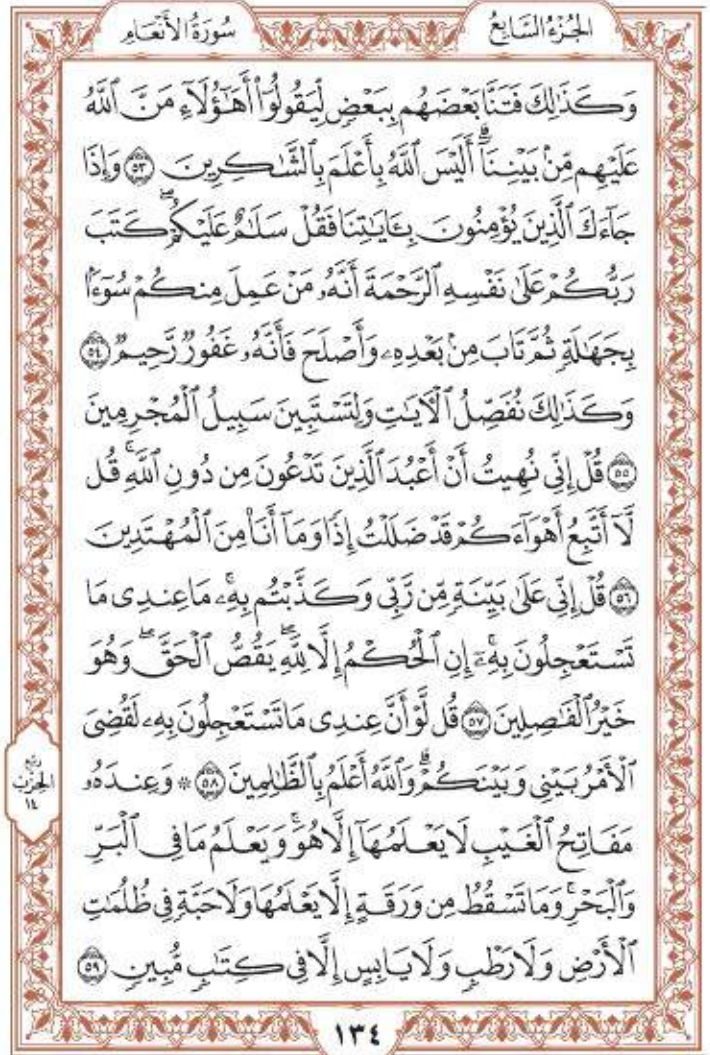 الجُزْءُ السَّابِعُ سُورَةُ الأَنْعَامِ
وَكَذَٰلِكَ فَتَنَّا بَعْضَهُم بِبَعْضٍ لِّيَقُولُوٓاْ أَهَـٰٓؤُلَآءِ مَنَّ ٱللَّهُ
عَلَيْهِم مِّنۢ بَيْنِنَآۗ أَلَيْسَ ٱللَّهُ بِأَعْلَمَ بِٱلشَّـٰكِرِينَ ۝٥٣ وَإِذَا
جَآءَكَ ٱلَّذِينَ يُؤْمِنُونَ بِـَٔايَـٰتِنَا فَقُلْ سَلَـٰمٌ عَلَيْكُمْۖ كَتَبَ
رَبُّكُمْ عَلَىٰ نَفْسِهِ ٱلرَّحْمَةَ أَنَّهُۥ مَنْ عَمِلَ مِنكُمْ سُوٓءَۢا
بِجَهَـٰلَةٍ ثُمَّ تَابَ مِنۢ بَعْدِهِۦ وَأَصْلَحَ فَأَنَّهُۥ غَفُورٌ رَّحِيمٌ ۝٥٤
وَكَذَٰلِكَ نُفَصِّلُ ٱلْـَٔايَـٰتِ وَلِتَسْتَبِينَ سَبِيلُ ٱلْمُجْرِمِينَ
۝٥٥ قُلْ إِنِّى نُهِيتُ أَنْ أَعْبُدَ ٱلَّذِينَ تَدْعُونَ مِن دُونِ ٱللَّهِۚ قُل
لَّآ أَتَّبِعُ أَهْوَآءَكُمْ قَدْ ضَلَلْتُ إِذًا وَمَآ أَنَا۠ مِنَ ٱلْمُهْتَدِينَ
۝٥٦ قُلْ إِنِّى عَلَىٰ بَيِّنَةٍ مِّن رَّبِّى وَكَذَّبْتُم بِهِۦۚ مَا عِندِى مَا
تَسْتَعْجِلُونَ بِهِۦٓۚ إِنِ ٱلْحُكْمُ إِلَّا لِلَّهِۖ يَقُصُّ ٱلْحَقَّۖ وَهُوَ
خَيْرُ ٱلْفَـٰصِلِينَ ۝٥٧ قُل لَّوْ أَنَّ عِندِى مَا تَسْتَعْجِلُونَ بِهِۦ لَقُضِىَ
ٱلْأَمْرُ بَيْنِى وَبَيْنَكُمْۗ وَٱللَّهُ أَعْلَمُ بِٱلظَّـٰلِمِينَ ۝٥٨ ۞ وَعِندَهُۥ
رُبْعُ
الحِزْبِ
١٤
مَفَاتِحُ ٱلْغَيْبِ لَا يَعْلَمُهَآ إِلَّا هُوَۚ وَيَعْلَمُ مَا فِى ٱلْبَرِّ
وَٱلْبَحْرِۚ وَمَا تَسْقُطُ مِن وَرَقَةٍ إِلَّا يَعْلَمُهَا وَلَا حَبَّةٍ فِى ظُلُمَـٰتِ
ٱلْأَرْضِ وَلَا رَطْبٍ وَلَا يَابِسٍ إِلَّا فِى كِتَـٰبٍ مُّبِينٍ ۝٥٩
١٣٤